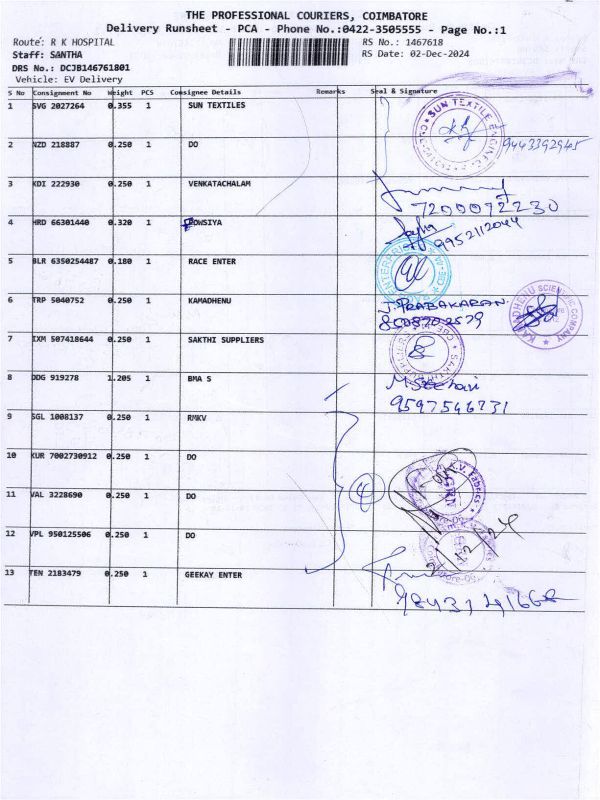 THE PROFESSIONAL COURIERS, COIMBATORE
Delivery Runsheet - PCA - Phone No.:0422-3505555 - Page No.:1
Route: R K HOSPITAL
RS No.: 1467618
Staff: SANTHA
RS Date: 02-Dec-2024
DRS No.: DCJB146761801
Vehicle: EV Delivery
S No Consignment No Weight PCS Consignee Details Remarks Seal & Signature
1 SVG 2027264 0.355 1 SUN TEXTILES
2 NZD 218887 0.250 1 DO 9443392945
3 KDI 222930 0.250 1 VENKATACHALAM
7200072230
4 HRD 66301440 0.320 1 FOWSIYA
9952112044
5 BLR 6350254487 0.180 1 RACE ENTER
6 TRP 5040752 0.250 1 KAMADHENU J. PRABAKARAN
7 IXM 507418644 0.250 1 SAKTHI SUPPLIERS
8 DDG 919278 1.205 1 BMA S
9597546731
9 SGL 1008137 0.250 1 RMKV
10 KUR 7002730912 0.250 1 DO
11 VAL 3228690 0.250 1 DO
4
12 VPL 950125506 0.250 1 DO
13 TEN 2183479 0.250 1 GEEKAY ENTER